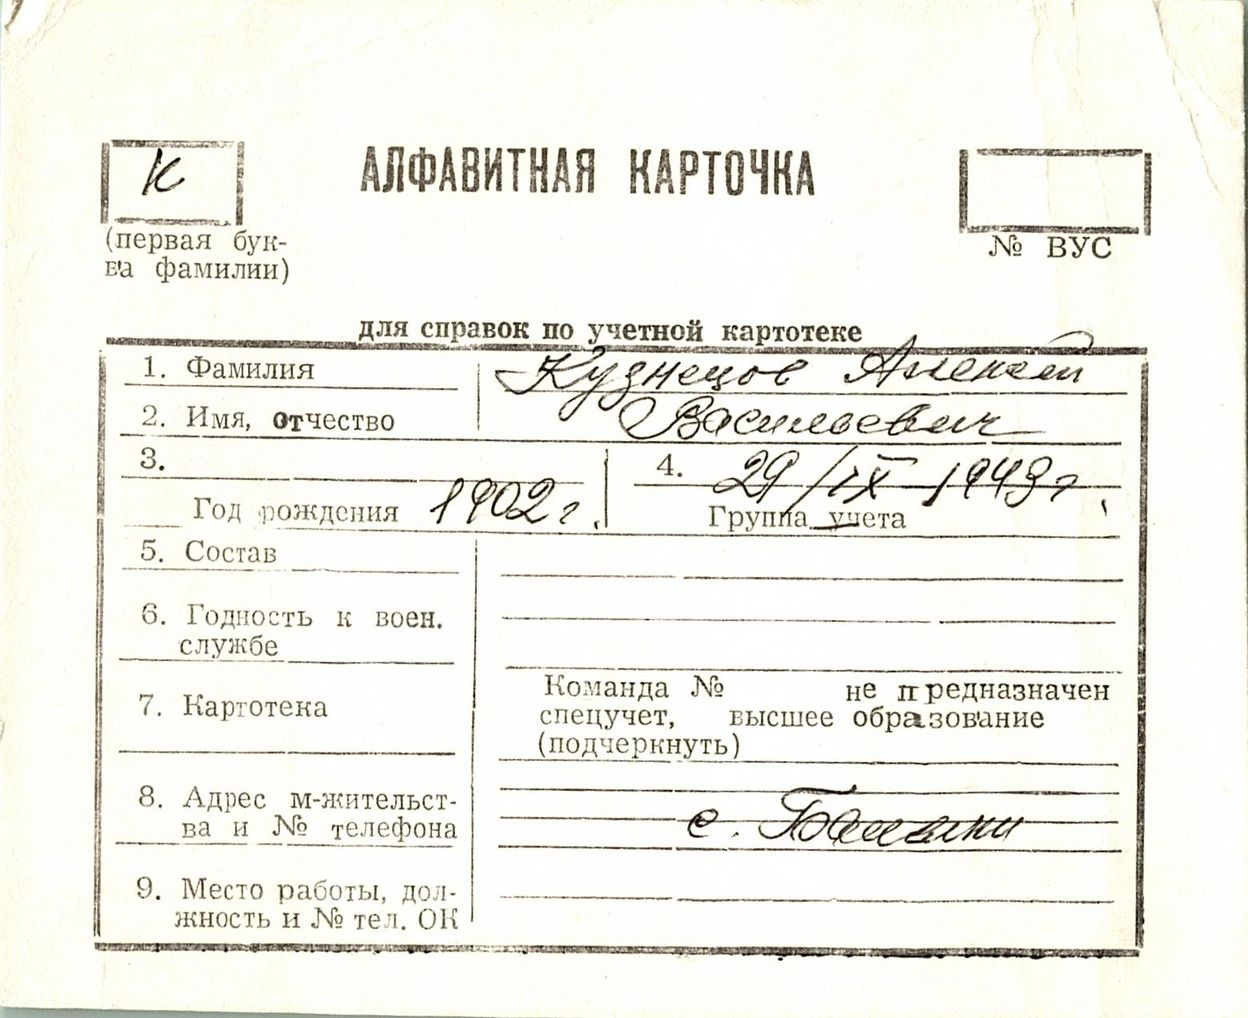 К
АЛФАВИТНАЯ КАРТОЧКА
(первая бук-
ва фамилии)
№ ВУС
для справок по учетной картотеке
1. Фамилия Кузнецов Алексей
2. Имя, отчество Васильевич
3.
Год рождения 1902 г.
4. 29/IX 1943 г.
Группа учета
5. Состав
6. Годность к воен.
службе
7. Картотека
Команда № не предназначен
спецучет, высшее образование
(подчеркнуть)
8. Адрес м-жительст-
ва и № телефона
с.
9. Место работы, дол-
жность и № тел. ОК